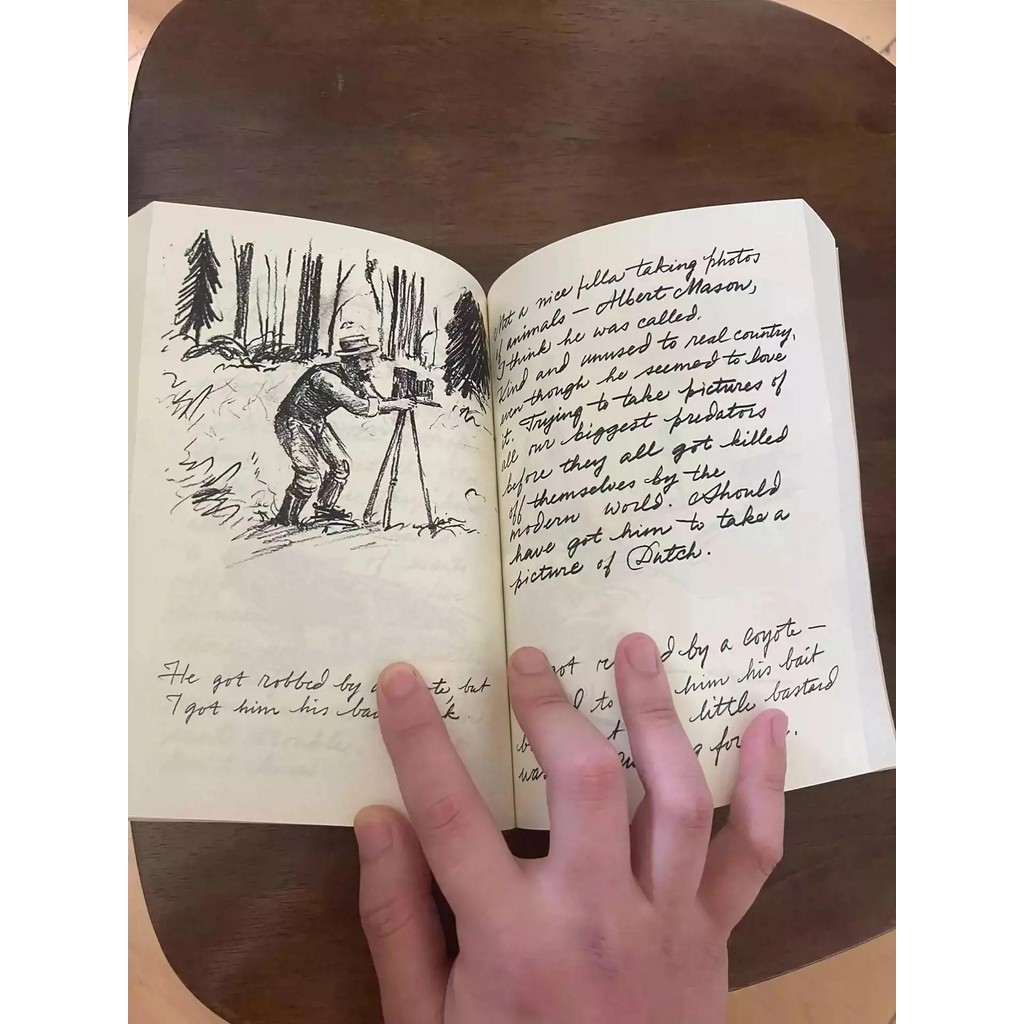 He got robbed by a te but
I got him his ba k.
Met a nice fella taking photos
of animals – Albert Mason,
I think he was called.
Kind and unused to real country,
even though he seemed to love
it. Trying to take pictures of
all our biggest predators
before they all got killed
off themselves by the
modern world. Should
have got him to take a
picture of Dutch.
got by a coyote –
to him his bait
little bastard